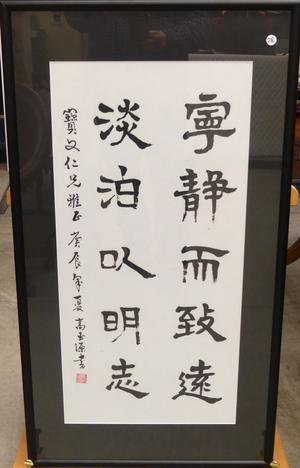 寧靜而致遠
淡泊以明志
寶文仁兄雅正 庚辰年夏 高玉源書
28